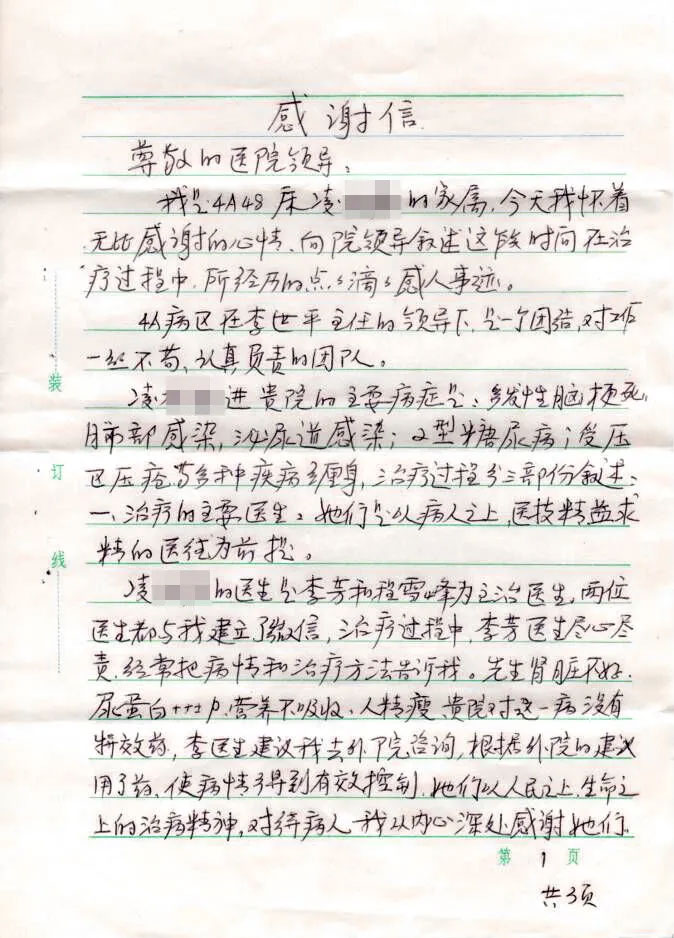 感谢信
尊敬的医院领导:
我是4A48床凌 的家属,今天我怀着
无比感谢的心情、向院领导叙述这段时间在治
疗过程中.所经历的点点滴滴感人事迹。
4A病区在李世平主任的领导下,是一个团结,对工作
一丝不苟、认真负责的团队。
凌 进贵院的主要病症是:多发性脑梗死,
肺部感染,泌尿道感染;2型糖尿病;受压
区压疮等多种疾病缠身,治疗过程分三部份叙述:
一、治疗的主要医生。她们是以病人之上,医技精益求
精的医 为前提。
凌 的医生是李芳和程雪峰为主治医生,两位
医生都与我建立了微信,治疗过程中,李芳医生尽心尽
责.经常把病情和治疗方法告诉我。先生肾脏不好.
尿蛋白+++ .营养不吸收、人精瘦.贵院对这一病没有
特效药,李医生建议我去外院咨询,根据外院的建议
用了药、使病情得到有效控制.她们以人民之上.生命之
上的治病精神,对待病人 我从内心深处感谢她们.
装
订
线
第 1 页
共3页